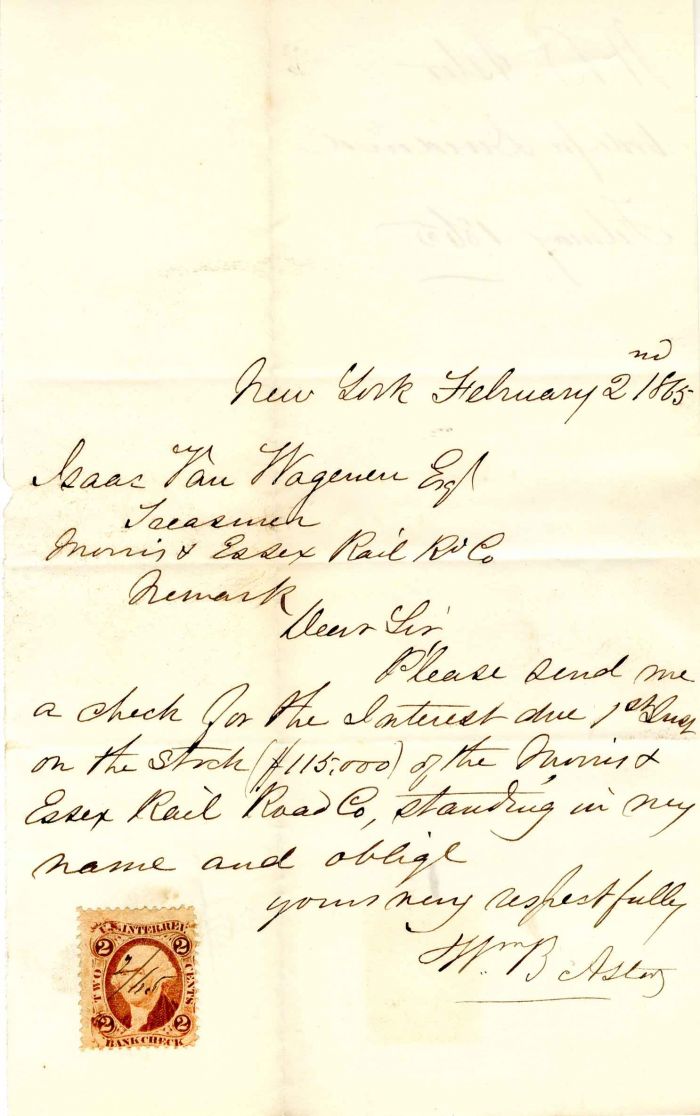 New York February 2nd 1865
Isaac Van Wagenen Esqr
Treasurer
Morris & Essex Rail Rd Co
Newark
Dear Sir
Please send me
a check for the Interest due 1st Inst
on the Stock ($115,000) of the Morris &
Essex Rail Road Co, standing in my
name and oblige
yours very respectfully
Wm B Astor
U.S. INTER. REV.
2 2
TWO CENTS
2/65
2 2
BANK CHECK